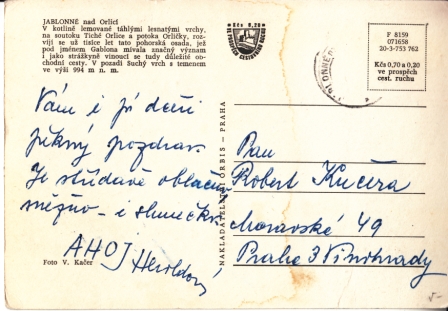 JABLONNE nad Orlicí
V kotlině lemované táhlými lesnatými vrchy,
na soutoku Tiché Orlice a potoka Orličky, roz-
víjí se už tisíce let tato pohorská osada, jež
pod jménem Gablona mívala značný význam
i jako strážkyně vinoucí se tudy důležité ob-
chodní cesty. V pozadí Suchý vrch s temenem
ve výši 994 m n. m.
Kčs 0,20
F 8159
071658
20-3-753 762
Kčs 0,70 a 0,20
ve prospěch
cest. ruchu
Vám i já
pěkný pozdrav.
Je střídavě oblačno
 i slunečko
AHOJ Heroldovi
Foto V. Kačer
NAKLADATELSTVÍ ORBIS - PRAHA
Pan
Robert Kučera
Moravské 49
Praha 3 Vinohrady